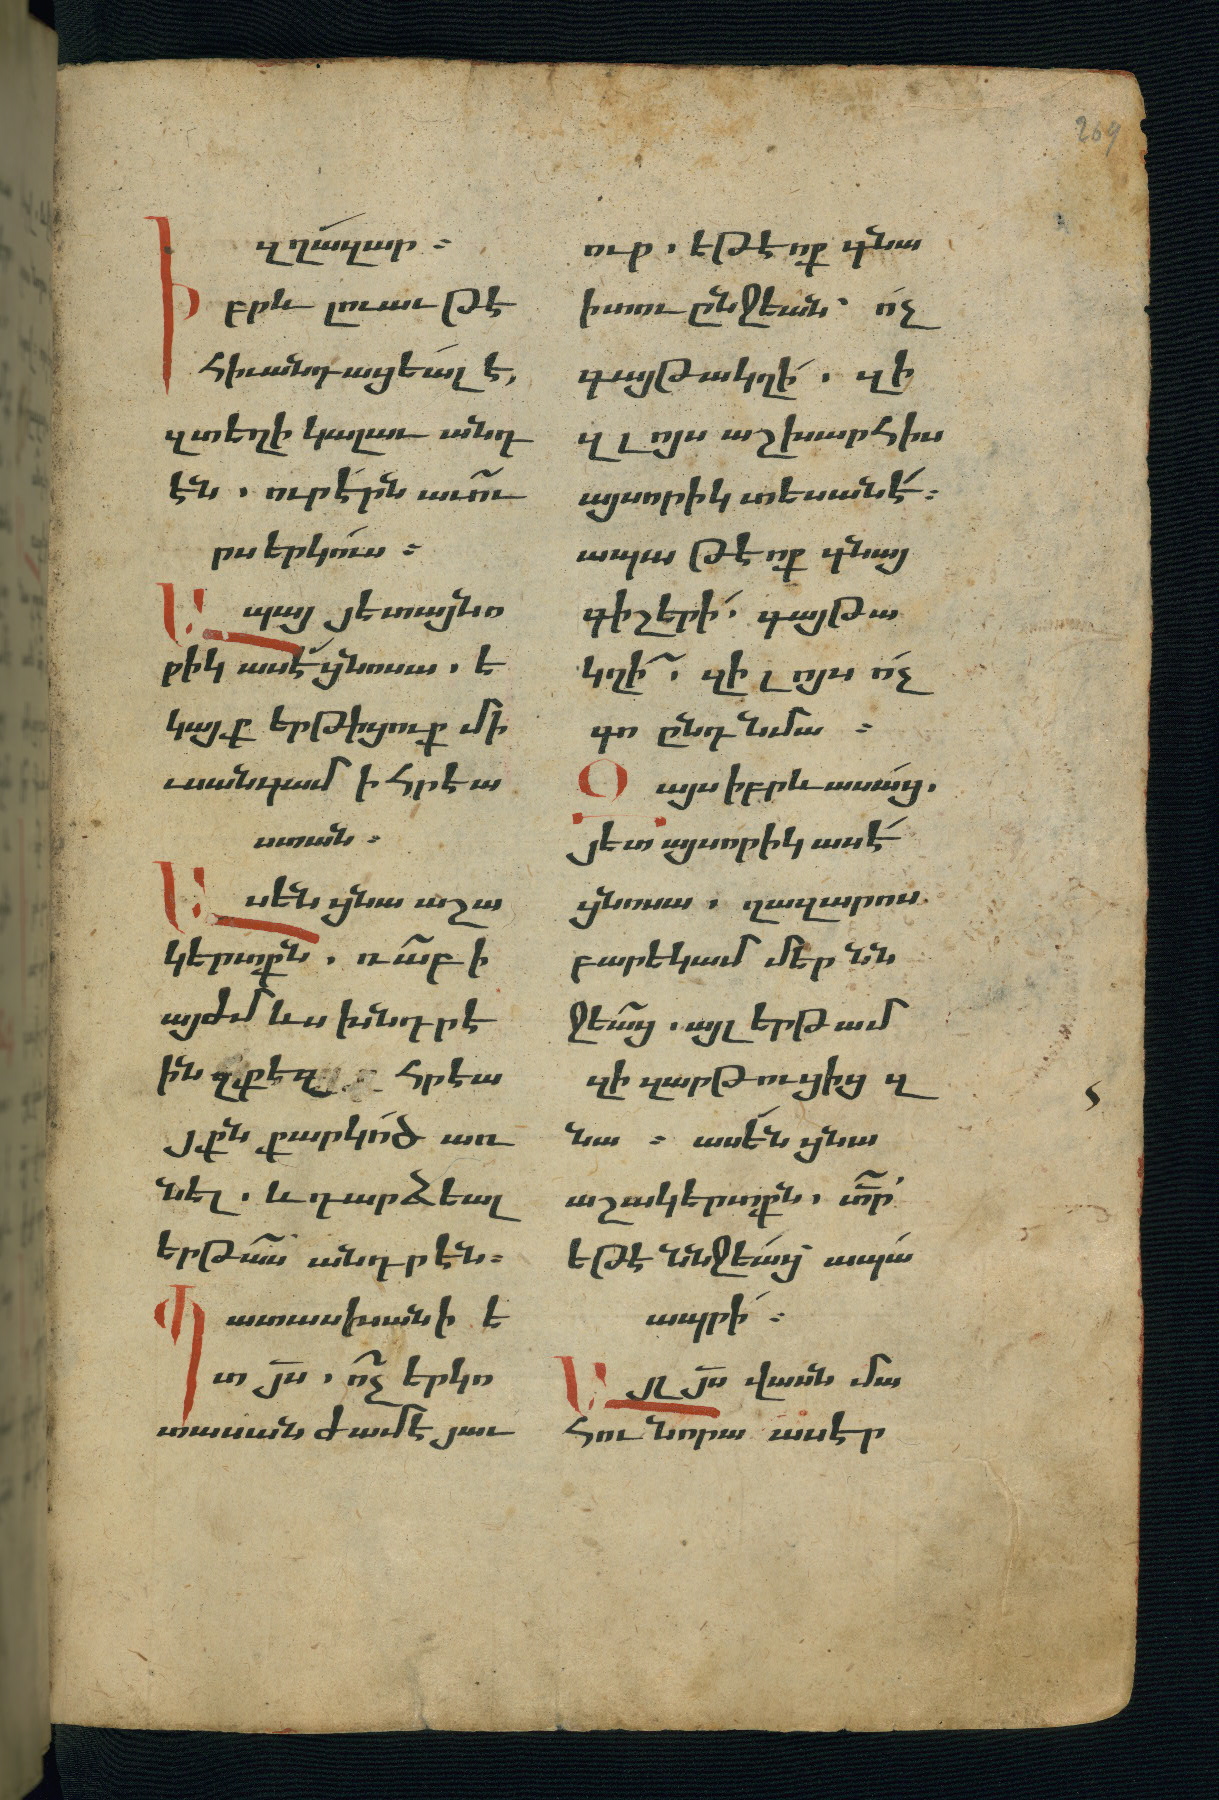 269
զղազար ։
Իբրև լուաւ թէ
հիւանդացեալ է,
զտեղի կալաւ անդ
էն . ուր էրն աւու
րս երկուս ։
Ապայ յետ այնո
րիկ ասէ ցնոսա . է
կայք երթիցուք մի
ւսանգամ ի հրէա
ստան ։
Ասեն ցնա աշա
կերտքն . ռաբբի
այժմ ևս խնդրէ
ին զքեզ հրէա
յքն քարկոծ առ
նել . և դարձեալ
երթաս անդրէն ։
Պատասխանի է
տ յս . ոչ երկո
տասան ժամ է յաւ
ուր . եթէ ոք գնա
իտու ընջեան՝ ոչ
գայթակղի . զի
զլոյս աշխարհիս
այսորիկ տեսանէ ։
ապա թէ ոք գնայ
գիշերի՝ գայթա
կղի . զի լոյս ոչ
գո ընդ նմա ։
Զայս իբրև ասաց .
յետ այսորիկ ասէ
ցնոսա . ղազարոս
բարեկամ մեր նն
ջեաց . այլ երթամ
զի զարթուցից զ
նա ։ ասեն ցնա
աշակերտքն . տր
եթէ ննջեաց՝ ապա
ապրի ։
Այլ յս վասն մա
հու նորա ասէր